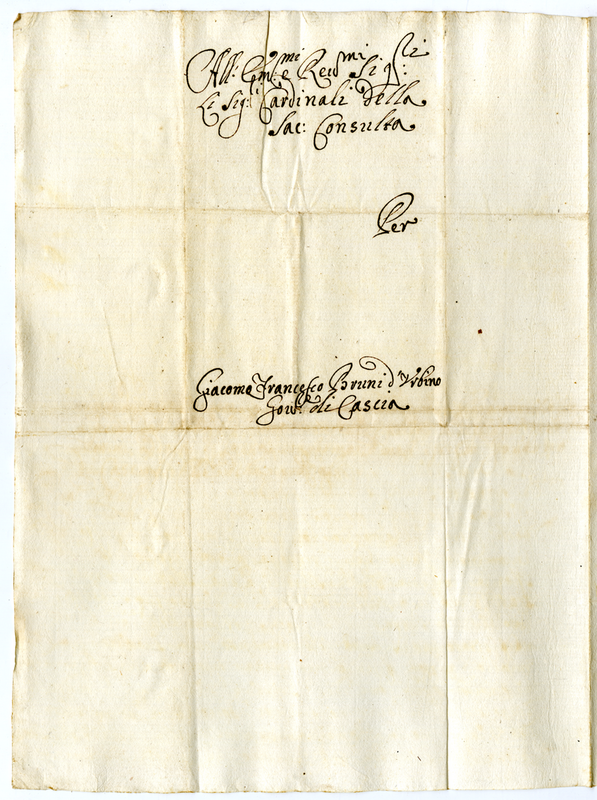 All: Em:mi e Reu:mi Sigri
Li Sig:i Cardinali della
Sac: Consulta
Per
Giacomo Francesco Bruni d'Urbino
Gou:r di Cascia